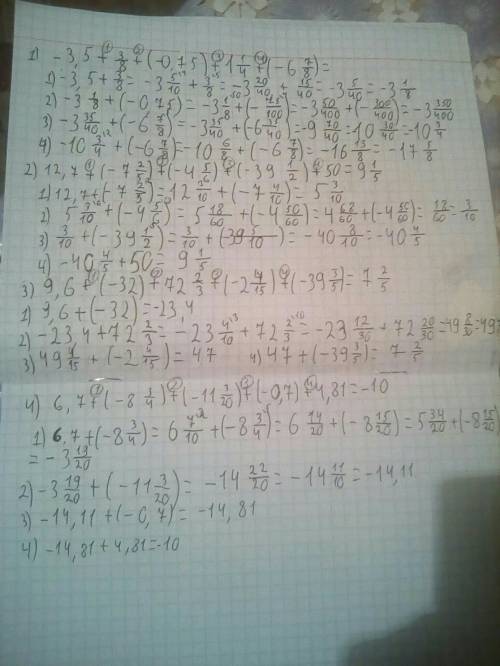 1) -3,5 + 3/8 + (-0,75) + 1 5/4 + (-6 7/8) =
1) -3,5 + 3/8 = -3 5/10 + 3/8 = -3 20/40 + 15/40 = -3 5/40 = -3 1/8
2) -3 1/8 + (-0,75) = -3 1/8 + (- 75/100) = -3 50/400 + (- 300/400) = -3 350/400
3) -3 35/40 + (-6 7/8) = -3 35/40 + (-6 35/40) = -9 70/40 = -10 30/40 = -10 3/4
4) -10 3/4 + (-6 7/8) = -10 6/8 + (-6 7/8) = -16 13/8 = -17 5/8
2) 12,7 + (-7 2/5) + (-4 5/6) + (-39 1/2) + 50 = 9 1/5
1) 12,7 + (-7 2/5) = 12 7/10 + (-7 4/10) = 5 3/10
2) 5 3/10 + (-4 5/6) = 5 18/60 + (-4 50/60) = 4 68/60 + (-4 50/60) = 18/60 = 3/10
3) 3/10 + (-39 1/2) = 3/10 + (39 5/10) = -40 8/10 = -40 4/5
4) -40 4/5 + 50 = 9 1/5
3) 9,6 + (-32) + 72 2/3 + (-2 4/15) + (-39 3/5) = 7 2/5
1) 9,6 + (-32) = -23,4
2) -23,4 + 72 2/3 = -23 4/10 + 72 2/3 = -23 12/30 + 72 20/30 = 49 8/30 = 49
3) 49 4/15 + (-2 4/15) = 47 4) 47 + (-39 3/5) = 7 2/5
4) 6,7 + (-8 3/4) + (-11 3/20) + (-0,7) + 4,81 = -10
1) 6,7 + (-8 3/4) = 6 7/10 + (-8 3/4) = 6 14/20 + (-8 15/20) = 5 34/20 + (-8 15/20)
= -3 19/20
2) -3 19/20 + (-11 3/20) = -14 22/20 = -14 11/10 = -14,11
3) -14,11 + (-0,7) = -14,81
4) -14,81 + 4,81 = -10